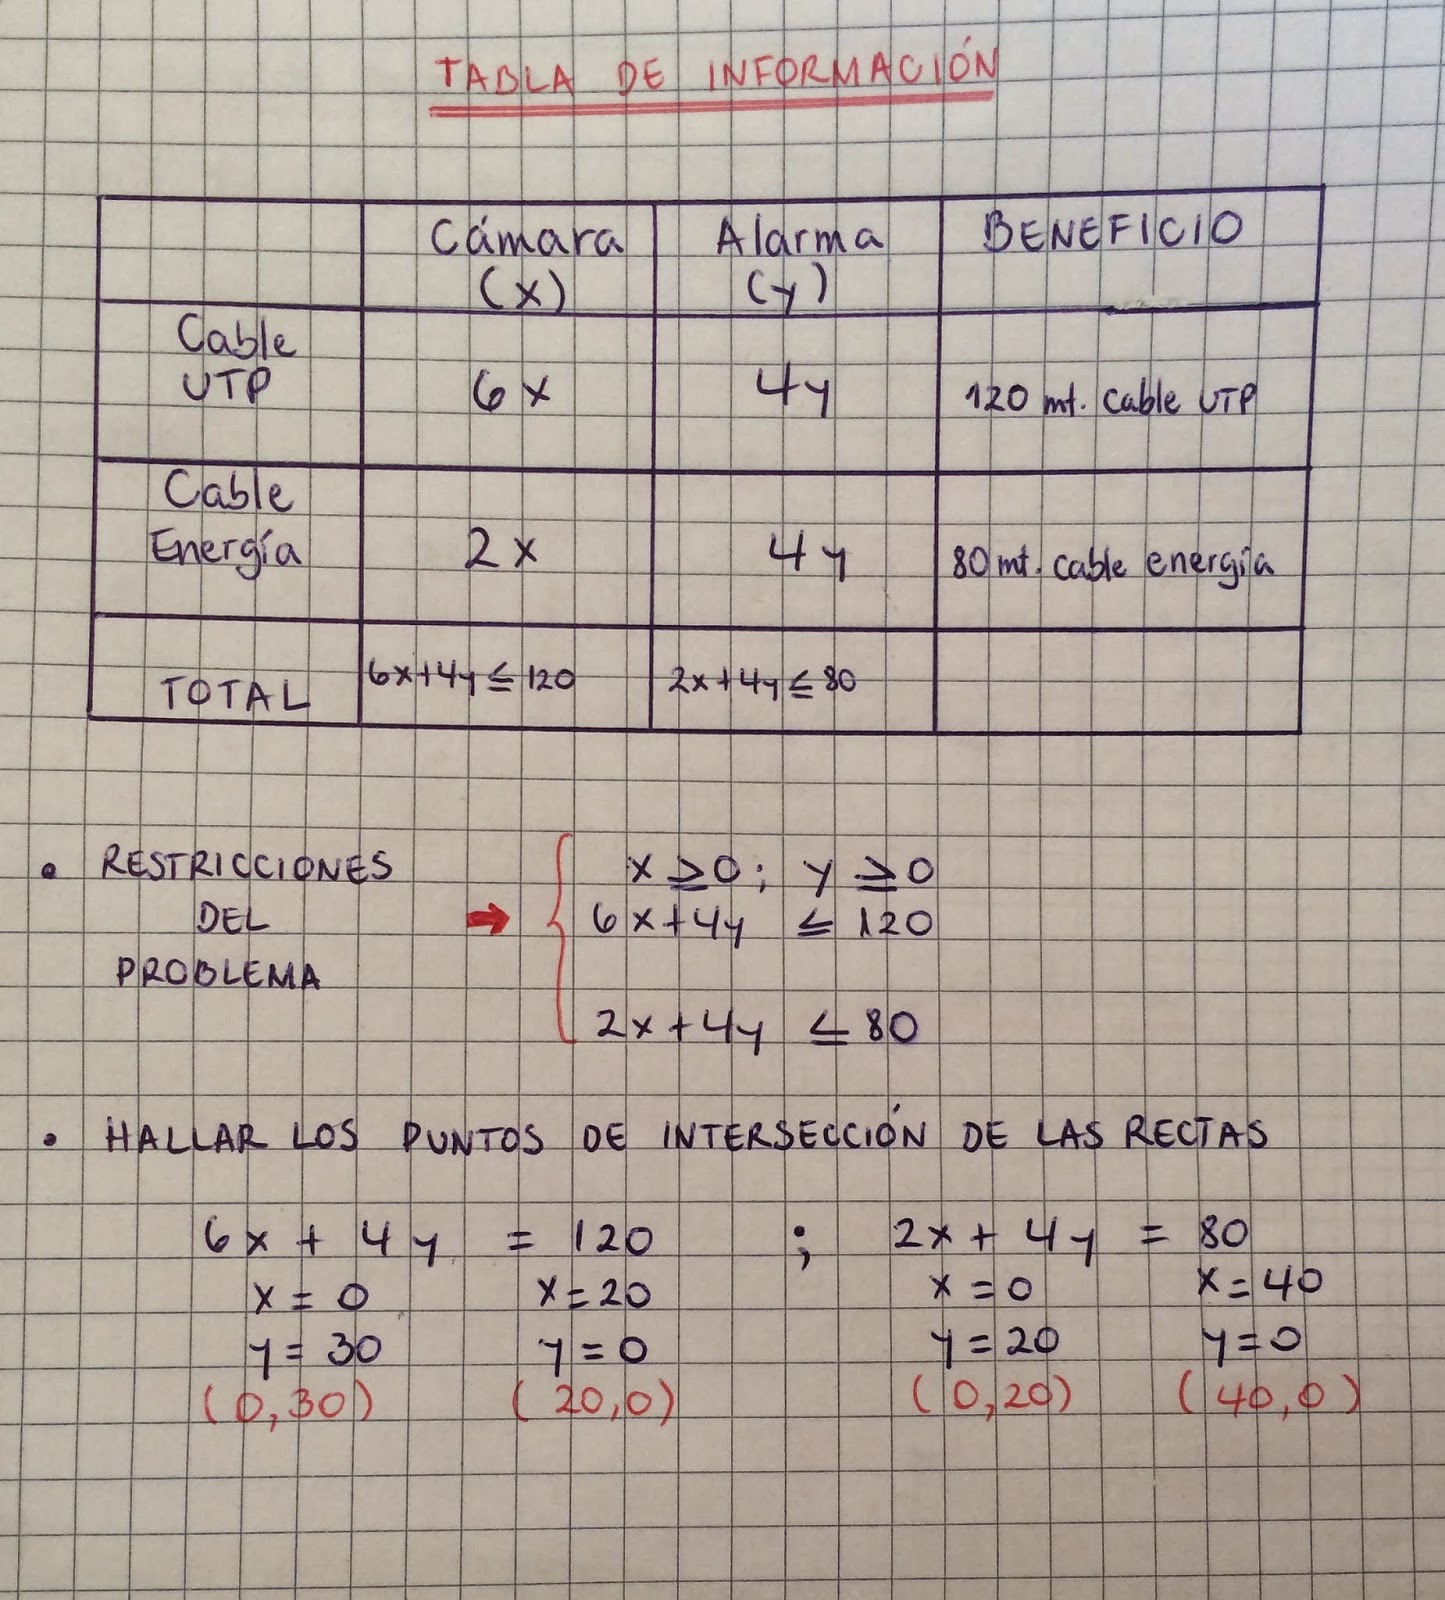 TABLA DE INFORMACIÓN
Cámara (x) Alarma (y) BENEFICIO
Cable UTP 6x 4y 120 mt. cable UTP
Cable Energía 2x 4y 80 mt. cable energía
TOTAL 6x+4y ≤ 120 2x+4y ≤ 80
• RESTRICCIONES DEL PROBLEMA ➡
x ≥ 0; y ≥ 0
6x+4y ≤ 120
2x+4y ≤ 80
• HALLAR LOS PUNTOS DE INTERSECCIÓN DE LAS RECTAS
6x + 4y = 120 ; 2x + 4y = 80
x = 0 x = 20 x = 0 x = 40
y = 30 y = 0 y = 20 y = 0
(0,30) (20,0) (0,20) (40,0)